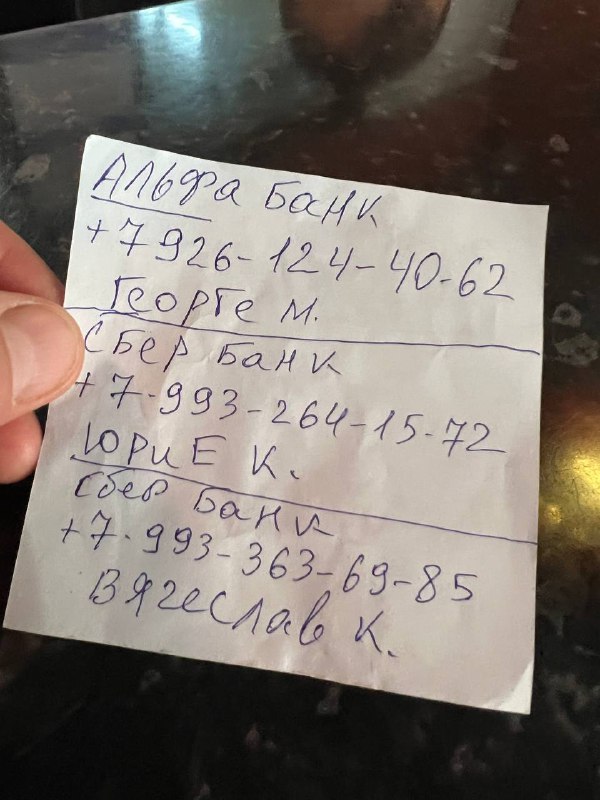 Альфа Банк
+7926-124-40-62
Георге м.
Сбер Банк
+7-993-264-15-72
Юрие К.
Сбер Банк
+7-993-363-69-85
Вячеслав К.